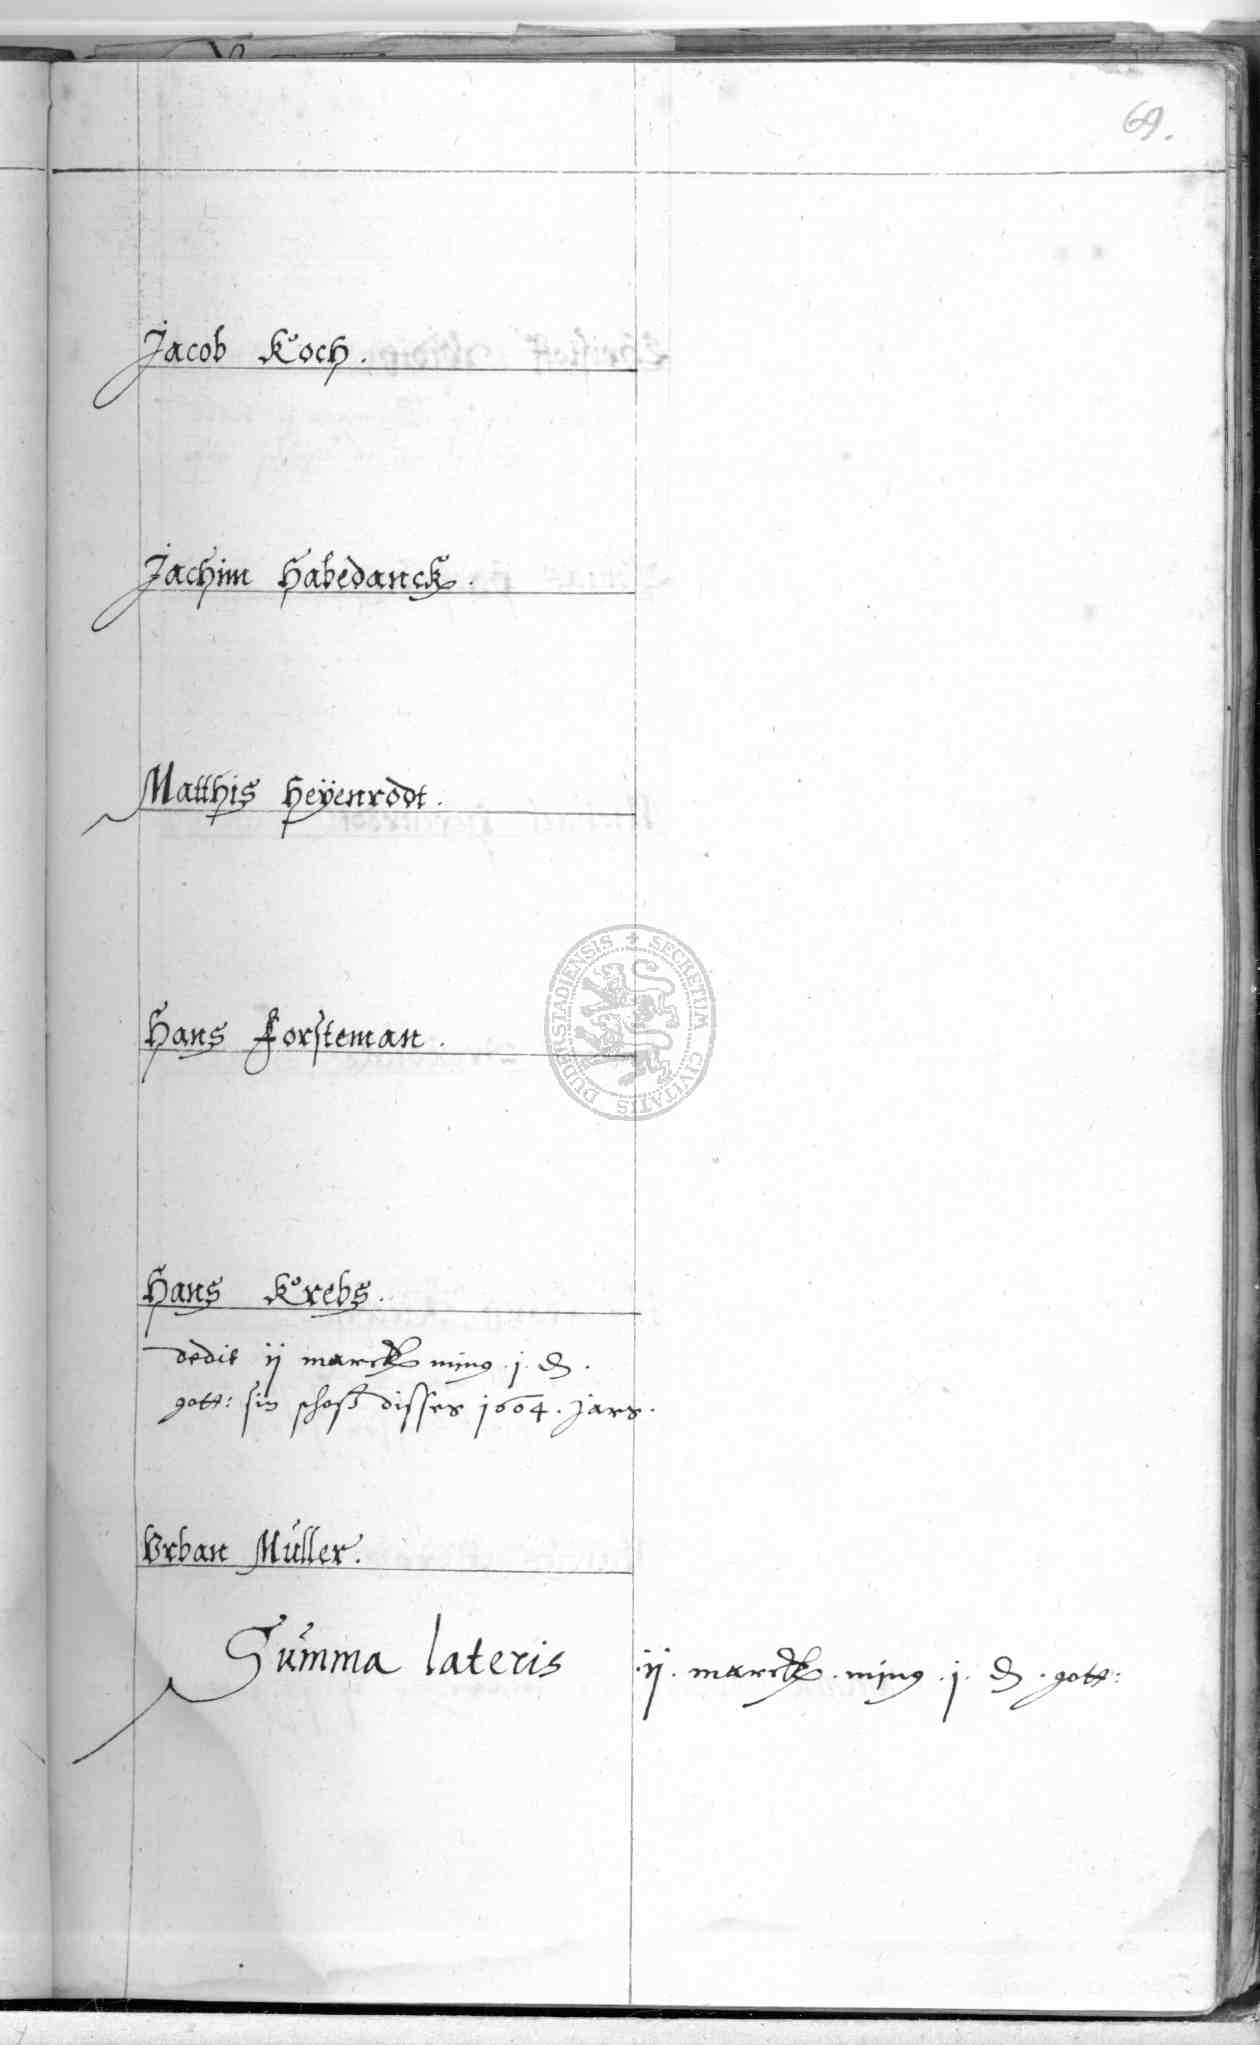 69.
Jacob Koch.
Jachim Habedanck.
Matthis Heÿenrodt.
Hans Forsteman.
SECRETUM CIVITATIS DUDERSTADIENSIS
Hans Krebs.
dedit ij marck min9 .j. ₰.
gott: sin schoß disses 1604. Jars.
Vrban Müller.
Summa lateris .ij. marck. min9 .j. ₰. gott: